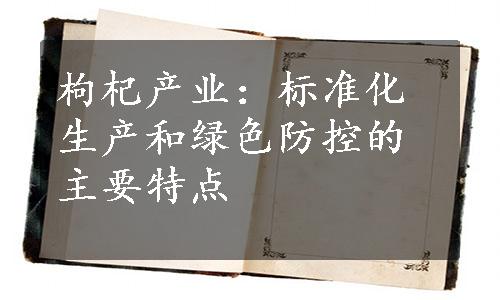 枸杞产业：标准化
生产和绿色防控的
主要特点